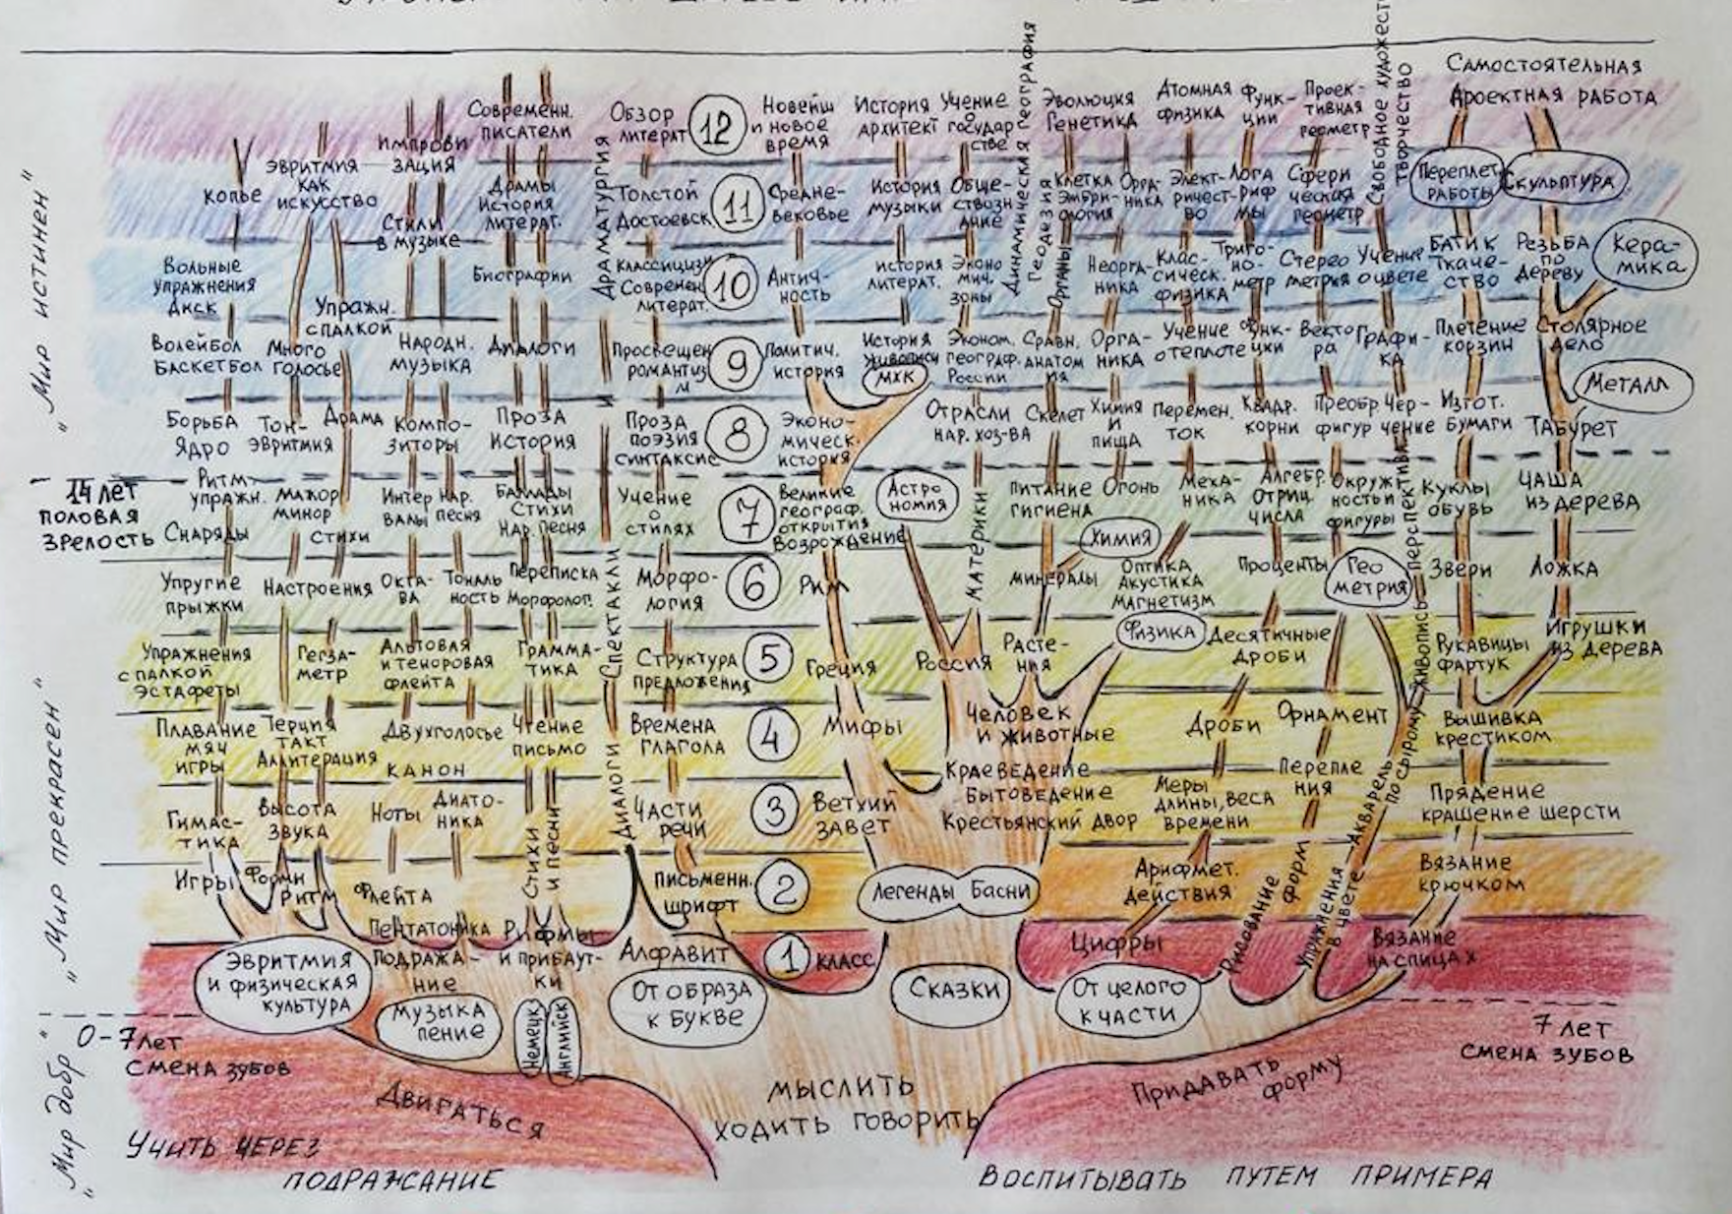 Самостоятельная
проектная работа
Современн.
писатели
Обзор
литерат
12
Новейш
и новое
время
История
архитект
Учение
о
государ
стве
Эволюция
Генетика
Атомная
физика
Функ-
ции
Проек-
тивная
геометр
Свободное художест
творчество
Динамическая география
Геодезия
Импрови
зация
Эвритмия
как
искусство
Копье
Стили
в музыке
Драмы
История
литерат.
Драматургия
и
Спектакли
Диалоги
Толстой
Достоевск.
11
Средне-
вековье
История
музыки
Обще-
ствозн
ание
Клетка
Эмбри-
ология
Орга-
ника
Элект-
ричест-
во
Лога
риф
мы
Сфери
ческая
геометр
Переплет
работы
Скульптура
Вольные
упражнения
Диск
Упражн.
с палкой
Биографии
Классицизм
Современ.
литерат.
10
Антич-
ность
История
литерат.
Эконо
мич.
зоны
Органы
Неорга-
ника
Клас-
сическ.
физика
Триго-
но-
метр
Стерео
метрия
Учение
о цвете
Батик
Ткаче-
ство
Резьба
по
дереву
Кера-
мика
Волейбол
Баскетбол
Много
голосье
Народн.
музыка
Диалоги
Просвещен
романтиз
м
9
Политич.
история
История
живописи
МХК
Эконом.
географ.
России
Сравн.
анатом
ия
Орга-
ника
Учение
о теплоте
Функ-
ции
Векто
ра
Графи-
ка
Плетение
корзин
Столярное
дело
Металл
Борьба
Ядро
Тон-
эвритмия
Драма
Компо-
зиторы
Проза
История
Проза
поэзия
синтаксис
8
Эконо-
мическ.
история
Отрасли
нар. хоз-ва
Скелет
Химия
и
пища
Перемен.
ток
Квадр.
корни
Преобр.
фигур
Чер-
чение
Изгот.
бумаги
Табурет
14 лет
половая
зрелость
Ритм.
упражн.
Снаряды
Мажор
минор
Стихи
Интер
валы
Нар.
песня
Баллады
Стихи
Нар. песня
Учение
о
стилях
7
Великие
географ.
открытия
Возрождение
Астро
номия
Материки
Питание
гигиена
Огонь
Меха-
ника
Алгебр.
Отриц.
числа
Окруж
ность и
фигуры
Перспектива
Куклы
обувь
Чаша
из дерева
Упругие
прыжки
Настроения
Окта-
ва
Тональ
ность
Переписка
Морфолог.
Морфо-
логия
6
Рим
Минералы
Химия
Оптика
Акустика
Магнетизм
Проценты
Гео
метрия
Звери
Ложка
Упражнения
с палкой
Эстафеты
Гегза-
метр
Альтовая
и теноровая
флейта
Грамма-
тика
Структура
предложения
5
Греция
Россия
Расте-
ния
Физика
Десятичные
дроби
Рукавицы
фартук
Игрушки
из дерева
Плавание
мяч
игры
Терция
такт
Аллитерация
Двухголосье
Чтение
письмо
Времена
глагола
4
Мифы
Человек
и животные
Дроби
Орнамент
Живопись
по сырому
Вышивка
крестиком
Канон
Гимас-
тика
Высота
звука
Ноты
Диато-
ника
Стихи
и песни
Части
речи
3
Ветхий
завет
Краеведение
Бытоведение
Крестьянский двор
Меры
длины, веса
времени
Перепле
ния
Акварель
Прядение
крашение шерсти
Игры
Формы
ритм
Флейта
Письменн.
шрифт
2
Легенды Басни
Арифмет.
действия
Рисование форм
Упражнения
в цвете
Вязание
крючком
Эвритмия
и физическая
культура
Пентатоника
Подража-
ние
Музыка
пение
Рифмы
и прибаут-
ки
Немецк.
Английск
Алфавит
От образа
к букве
1 класс
Сказки
Цифры
От целого
к части
Вязание
на спицах
0-7 лет
смена зубов
7 лет
смена зубов
Двигаться
Мыслить
ходить говорить
Придавать
форму
Учить через
подражание
Воспитывать путем примера
"Мир истинен"
"Мир прекрасен"
"Мир добр"